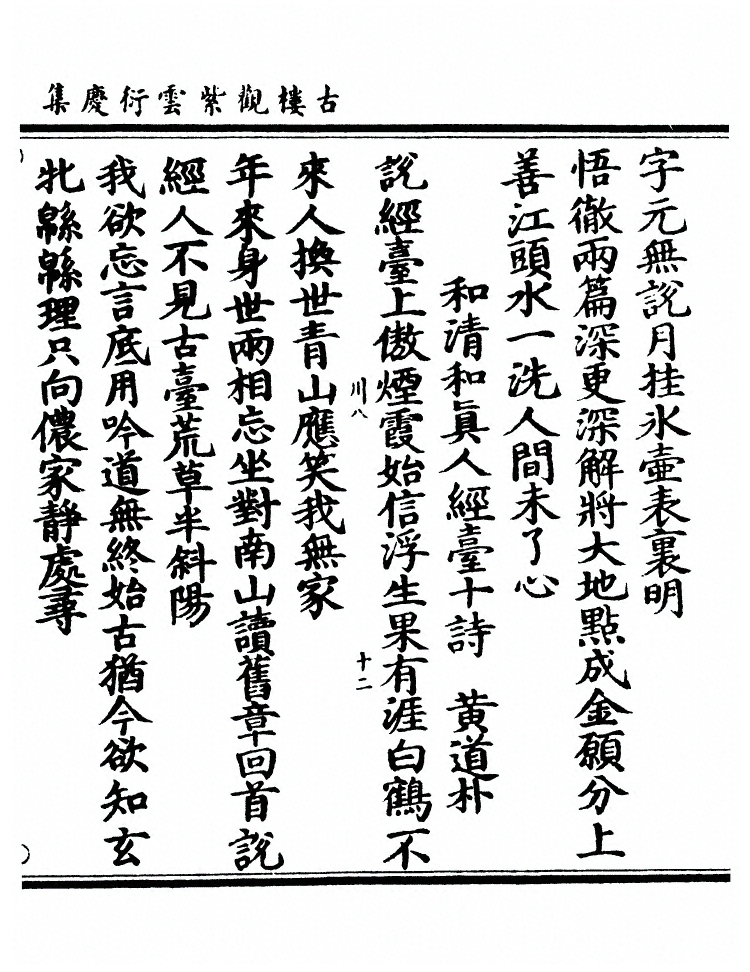 古樓觀紫雲衍慶集
字元無說月挂氷壺表裏明
悟徹兩篇深更深解將大地點成金願分上
善江頭水一洗人間未了心
和清和眞人經臺十詩　黄道朴
說經臺上傲煙霞始信浮生果有涯白鶴不
川八
十二
來人換世青山應笑我無家
年來身世兩相忘坐對南山讀舊章回首說
經人不見古臺荒草半斜陽
我欲忘言底用吟道無終始古猶今欲知玄
牝緜緜理只向儂家靜處尋